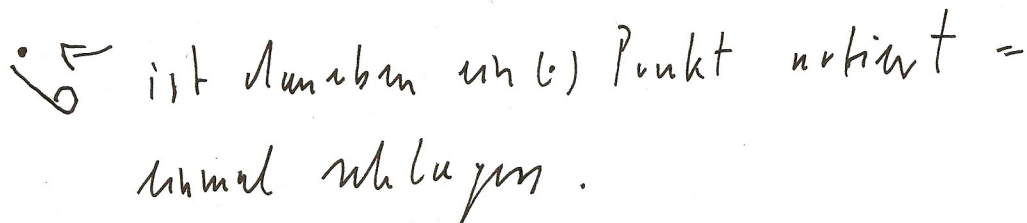 ist daneben ein (.) Punkt notiert =
einmal schlagen.